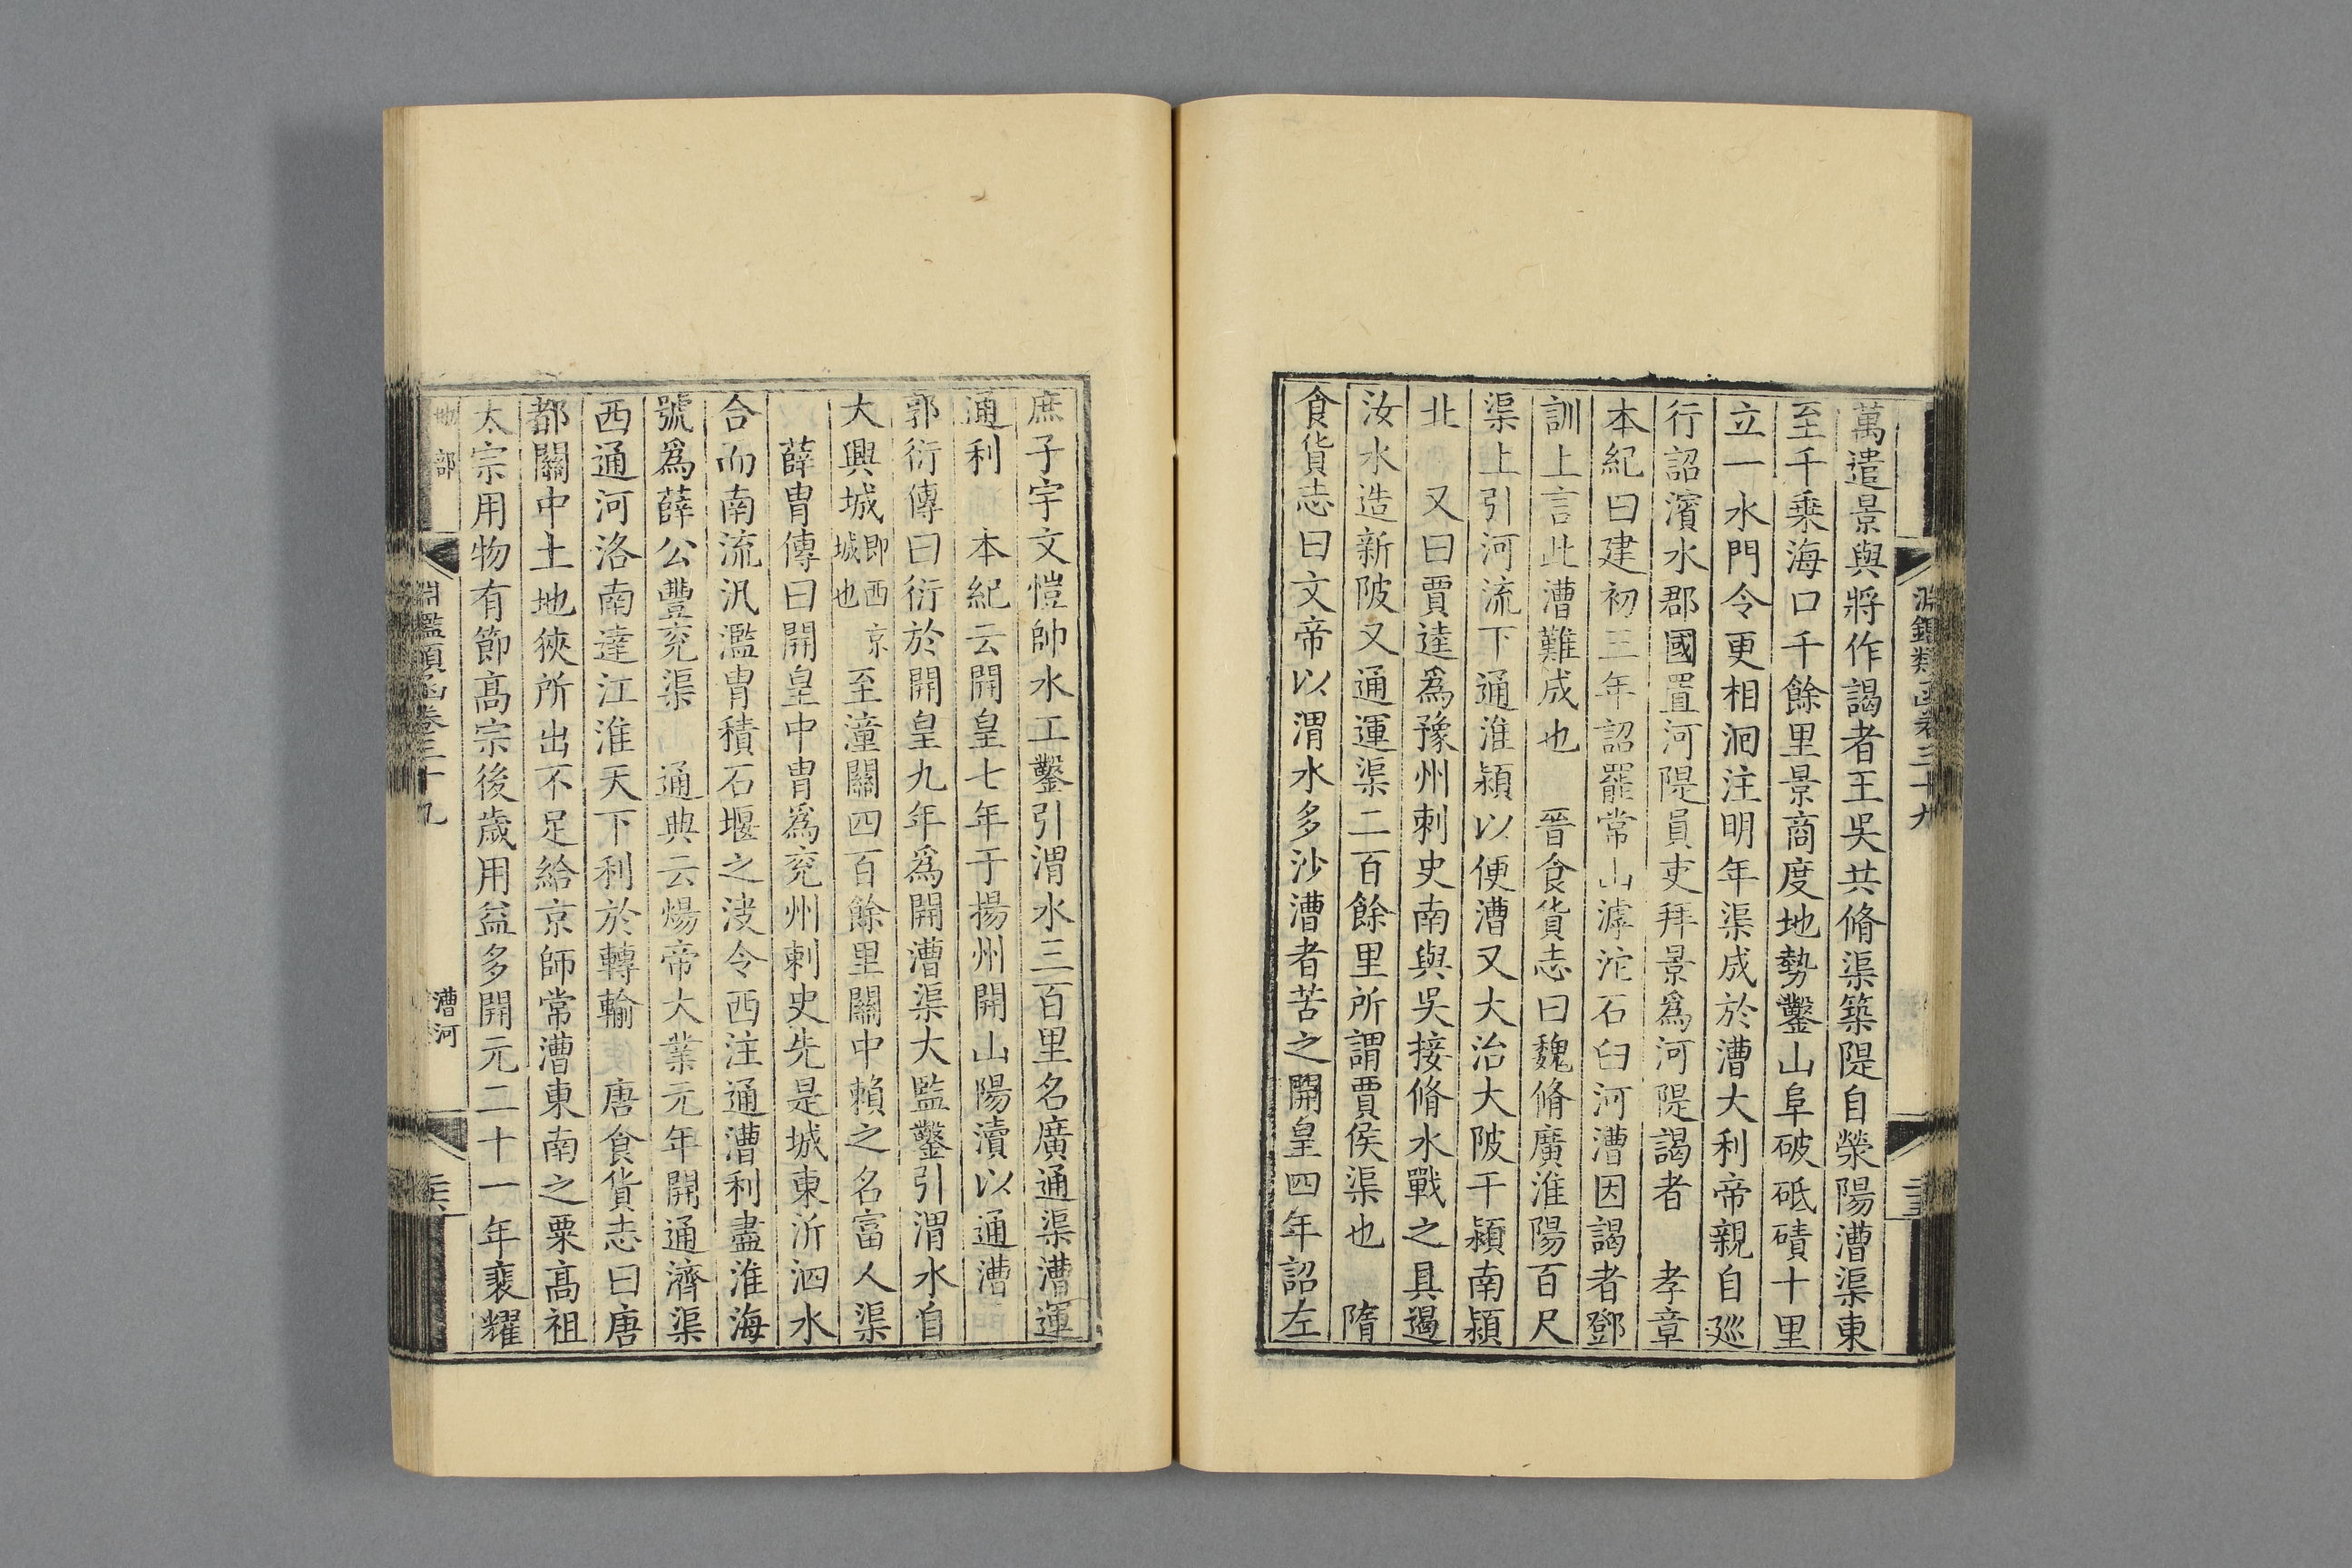 淵鑑類函卷三十九
萬遣景與將作謁者王吳共脩渠築隄自滎陽漕渠東
至千乗海口千餘里景商度地勢鑿山阜破砥磧十里
立一水門令更相洄注明年渠成於漕大利帝親自廵
行詔濱水郡國置河隄員吏拜景爲河隄謁者　孝章
本紀曰建初三年詔罷常山滹沱石臼河漕因謁者鄧
訓上言此漕難成也　晉食貨志曰魏脩廣淮陽百尺
渠上引河流下通淮潁以便漕又大治大陂于潁南潁
北　又曰賈逵爲豫州刺史南與吳接脩水戰之具遏
汝水造新陂又通運渠二百餘里所謂賈侯渠也　隋
食貨志曰文帝以渭水多沙漕者苦之開皇四年詔左
庶子宇文愷帥水工鑿引渭水三百里名廣通渠漕運
通利　本紀云開皇七年于揚州開山陽瀆以通漕
郭衍傳曰衍於開皇九年爲開漕渠大監鑿引渭水自
大興城即西京城也至潼關四百餘里關中賴之名富人渠
薛胄傳曰開皇中胄爲兖州刺史先是城東沂泗水
合而南流汎濫胄積石堰之決令西注通漕利盡淮海
號爲薛公豐兖渠　通典云煬帝大業元年開通濟渠
西通河洛南達江淮天下利於轉輸　唐食貨志曰唐
都關中土地狹所出不足給京師常漕東南之粟高祖
太宗用物有節高宗後歲用益多開元二十一年裴耀
地部　淵鑑類函卷三十九　漕河